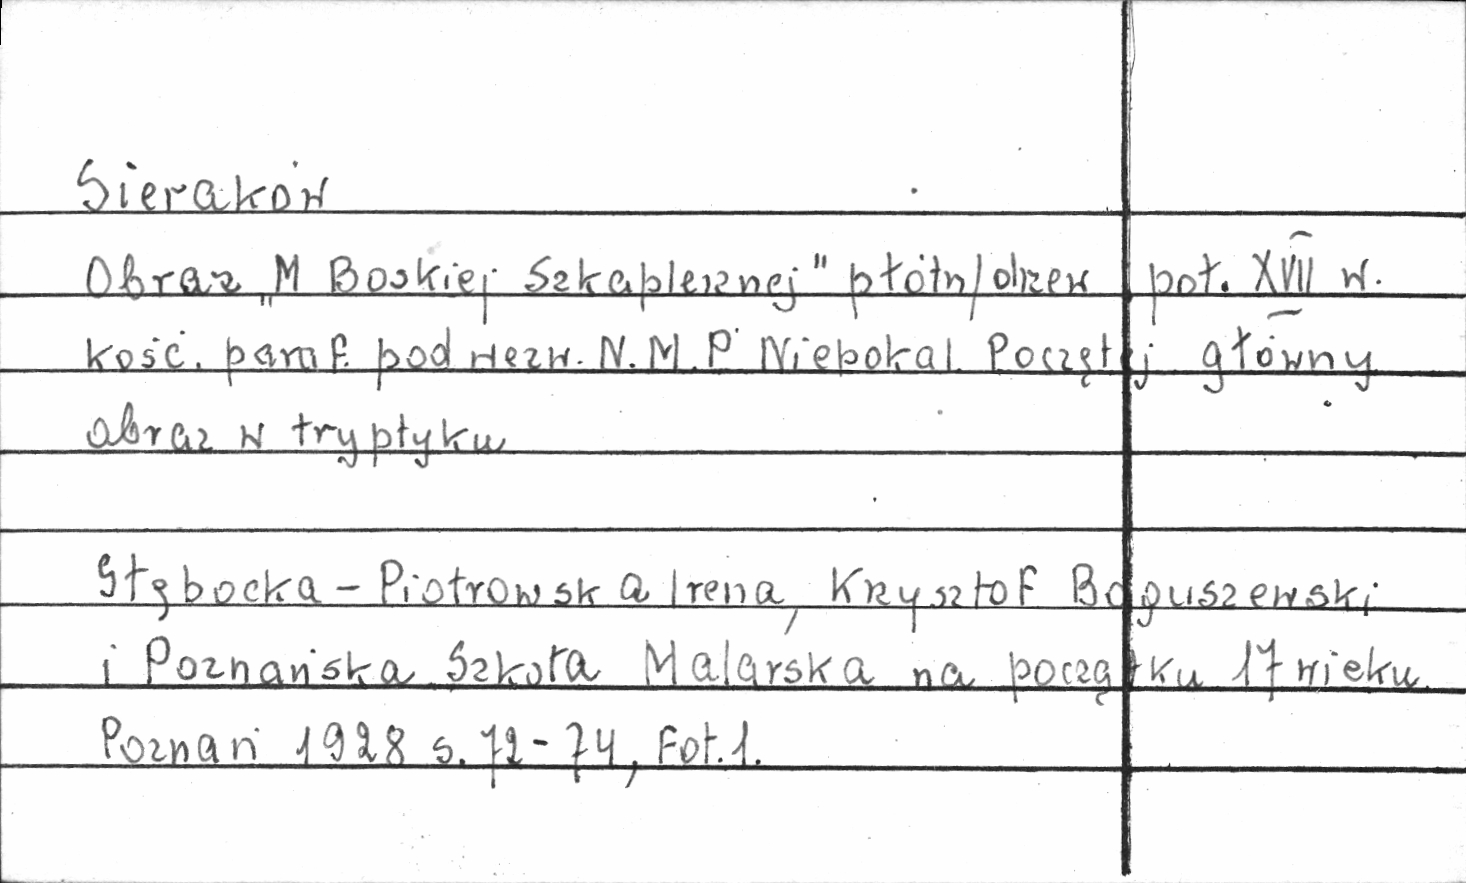 Sieraków
Obraz „M Boskiej Szkaplerznej" płótn/drzew poł. XVII w.
kość. paraf. pod wezw. N.M.P Niepokal. Poczętej główny
obraz w tryptyku
Głębocka - Piotrowska Irena, Krzysztof Boguszewski
i Poznańska Szkoła Malarska na początku 17 wieku.
Poznań 1928 s. 72-74, Fot.1.